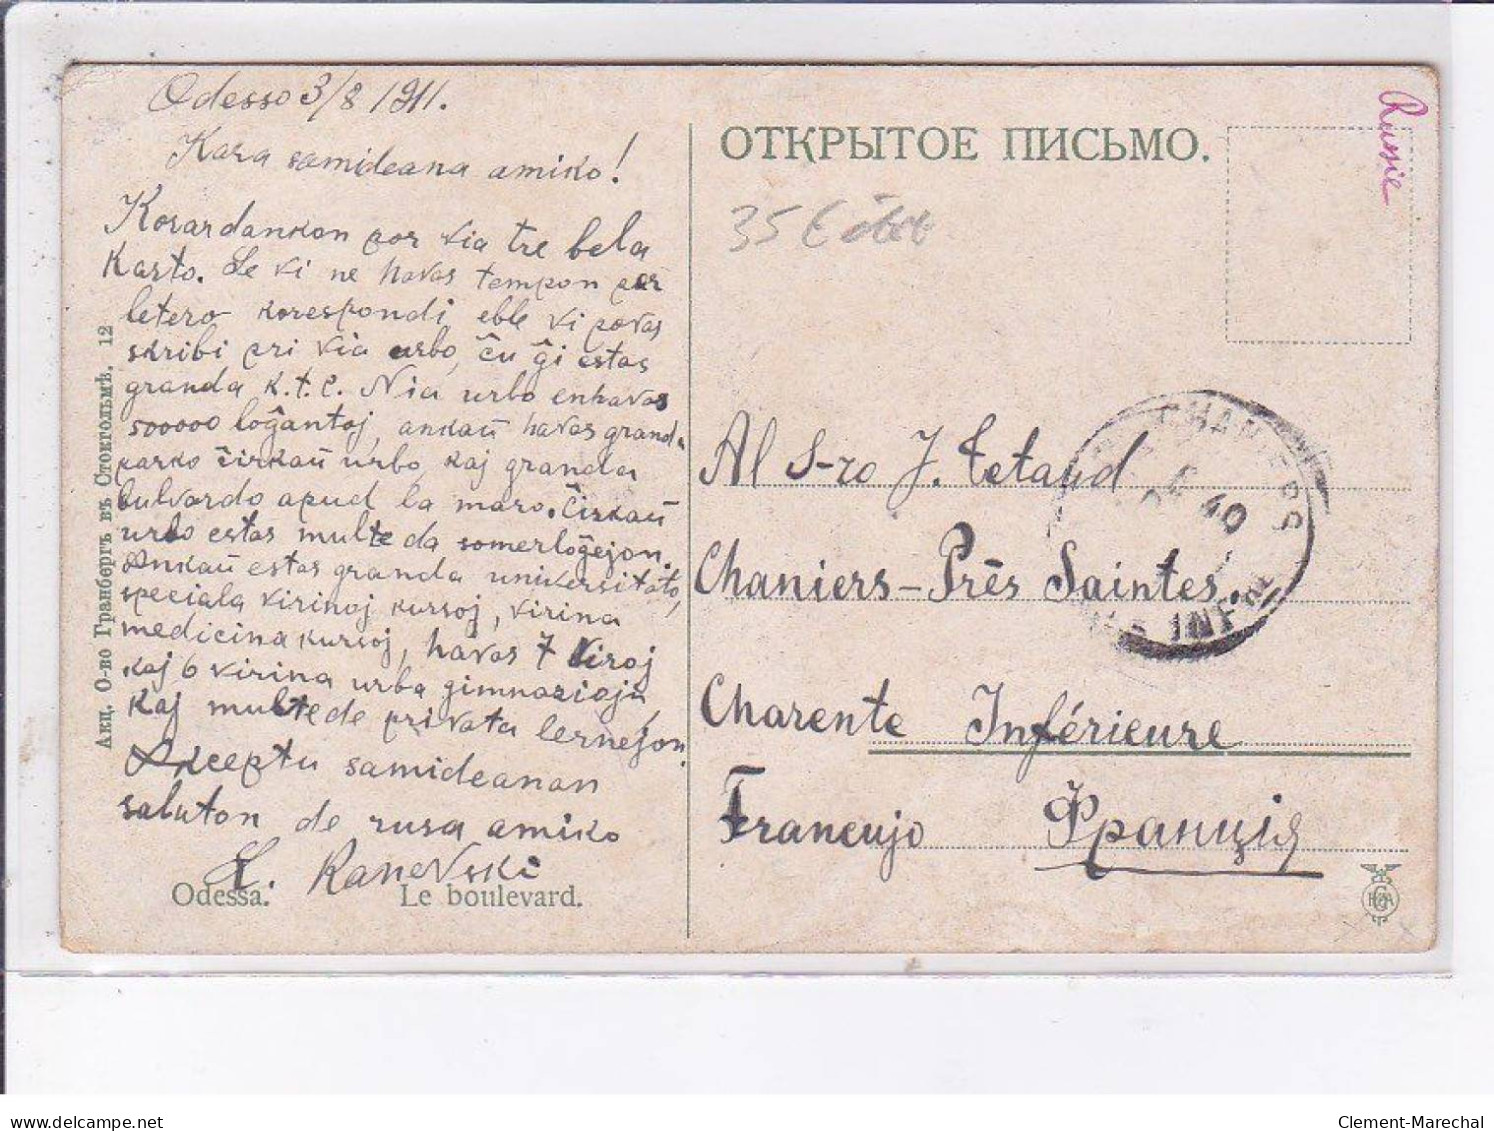 Odesso 3/8 1911.
Kara samideana amiko!
Korandankon por via tre bela
karto. Se vi ne havas tempon per
letero korespondi eble vi povas
skribi pri via urbo, ĉu ĝi estas
granda k.t.c. Nia urbo enhavas
500000 loĝantoj, ankaŭ havas granda
parko ĉirkaŭ urbo, kaj granda
bulvardo apud la maro. Ĉirkaŭ
urbo estas multe da somerloĝejon.
Ankaŭ estas granda universitato,
speciala virinoj kursoj, virina
medicina kursoj, havas 7 viroj
kaj 6 virina urba gimnazioju
kaj multe de privata lernejon.
Akceptu samideanan
saluton de rusa amiko
L. Ranevski
Odessa. Le boulevard.
Акц. О-во Гранбергъ въ Стокгольмѣ. 12
ОТКРЫТОЕ ПИСЬМО.
Russie
35 €
Al S-ro J. Tetaud
Chaniers-Près Saintes.
Charente Inférieure
Francujo Франція
CHANIERS
40
INF
Clement-Marechal
delcampe.net